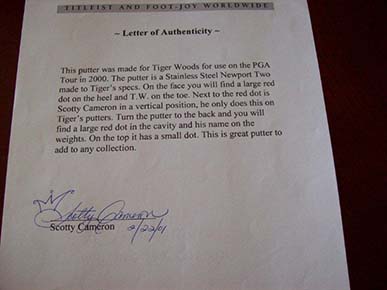 TITLEIST AND FOOT-JOY WORLDWIDE
~ Letter of Authenticity ~
This putter was made for Tiger Woods for use on the PGA
Tour in 2000. The putter is a Stainless Steel Newport Two
made to Tiger's specs. On the face you will find a large red
dot on the heel and T.W. on the toe. Next to the red dot is
Scotty Cameron in a vertical position, he only does this on
Tiger's putters. Turn the putter to the back and you will
find a large red dot in the cavity and his name on the
weights. On the top it has a small dot. This is great putter to
add to any collection.
Scotty Cameron
Scotty Cameron 2/22/01